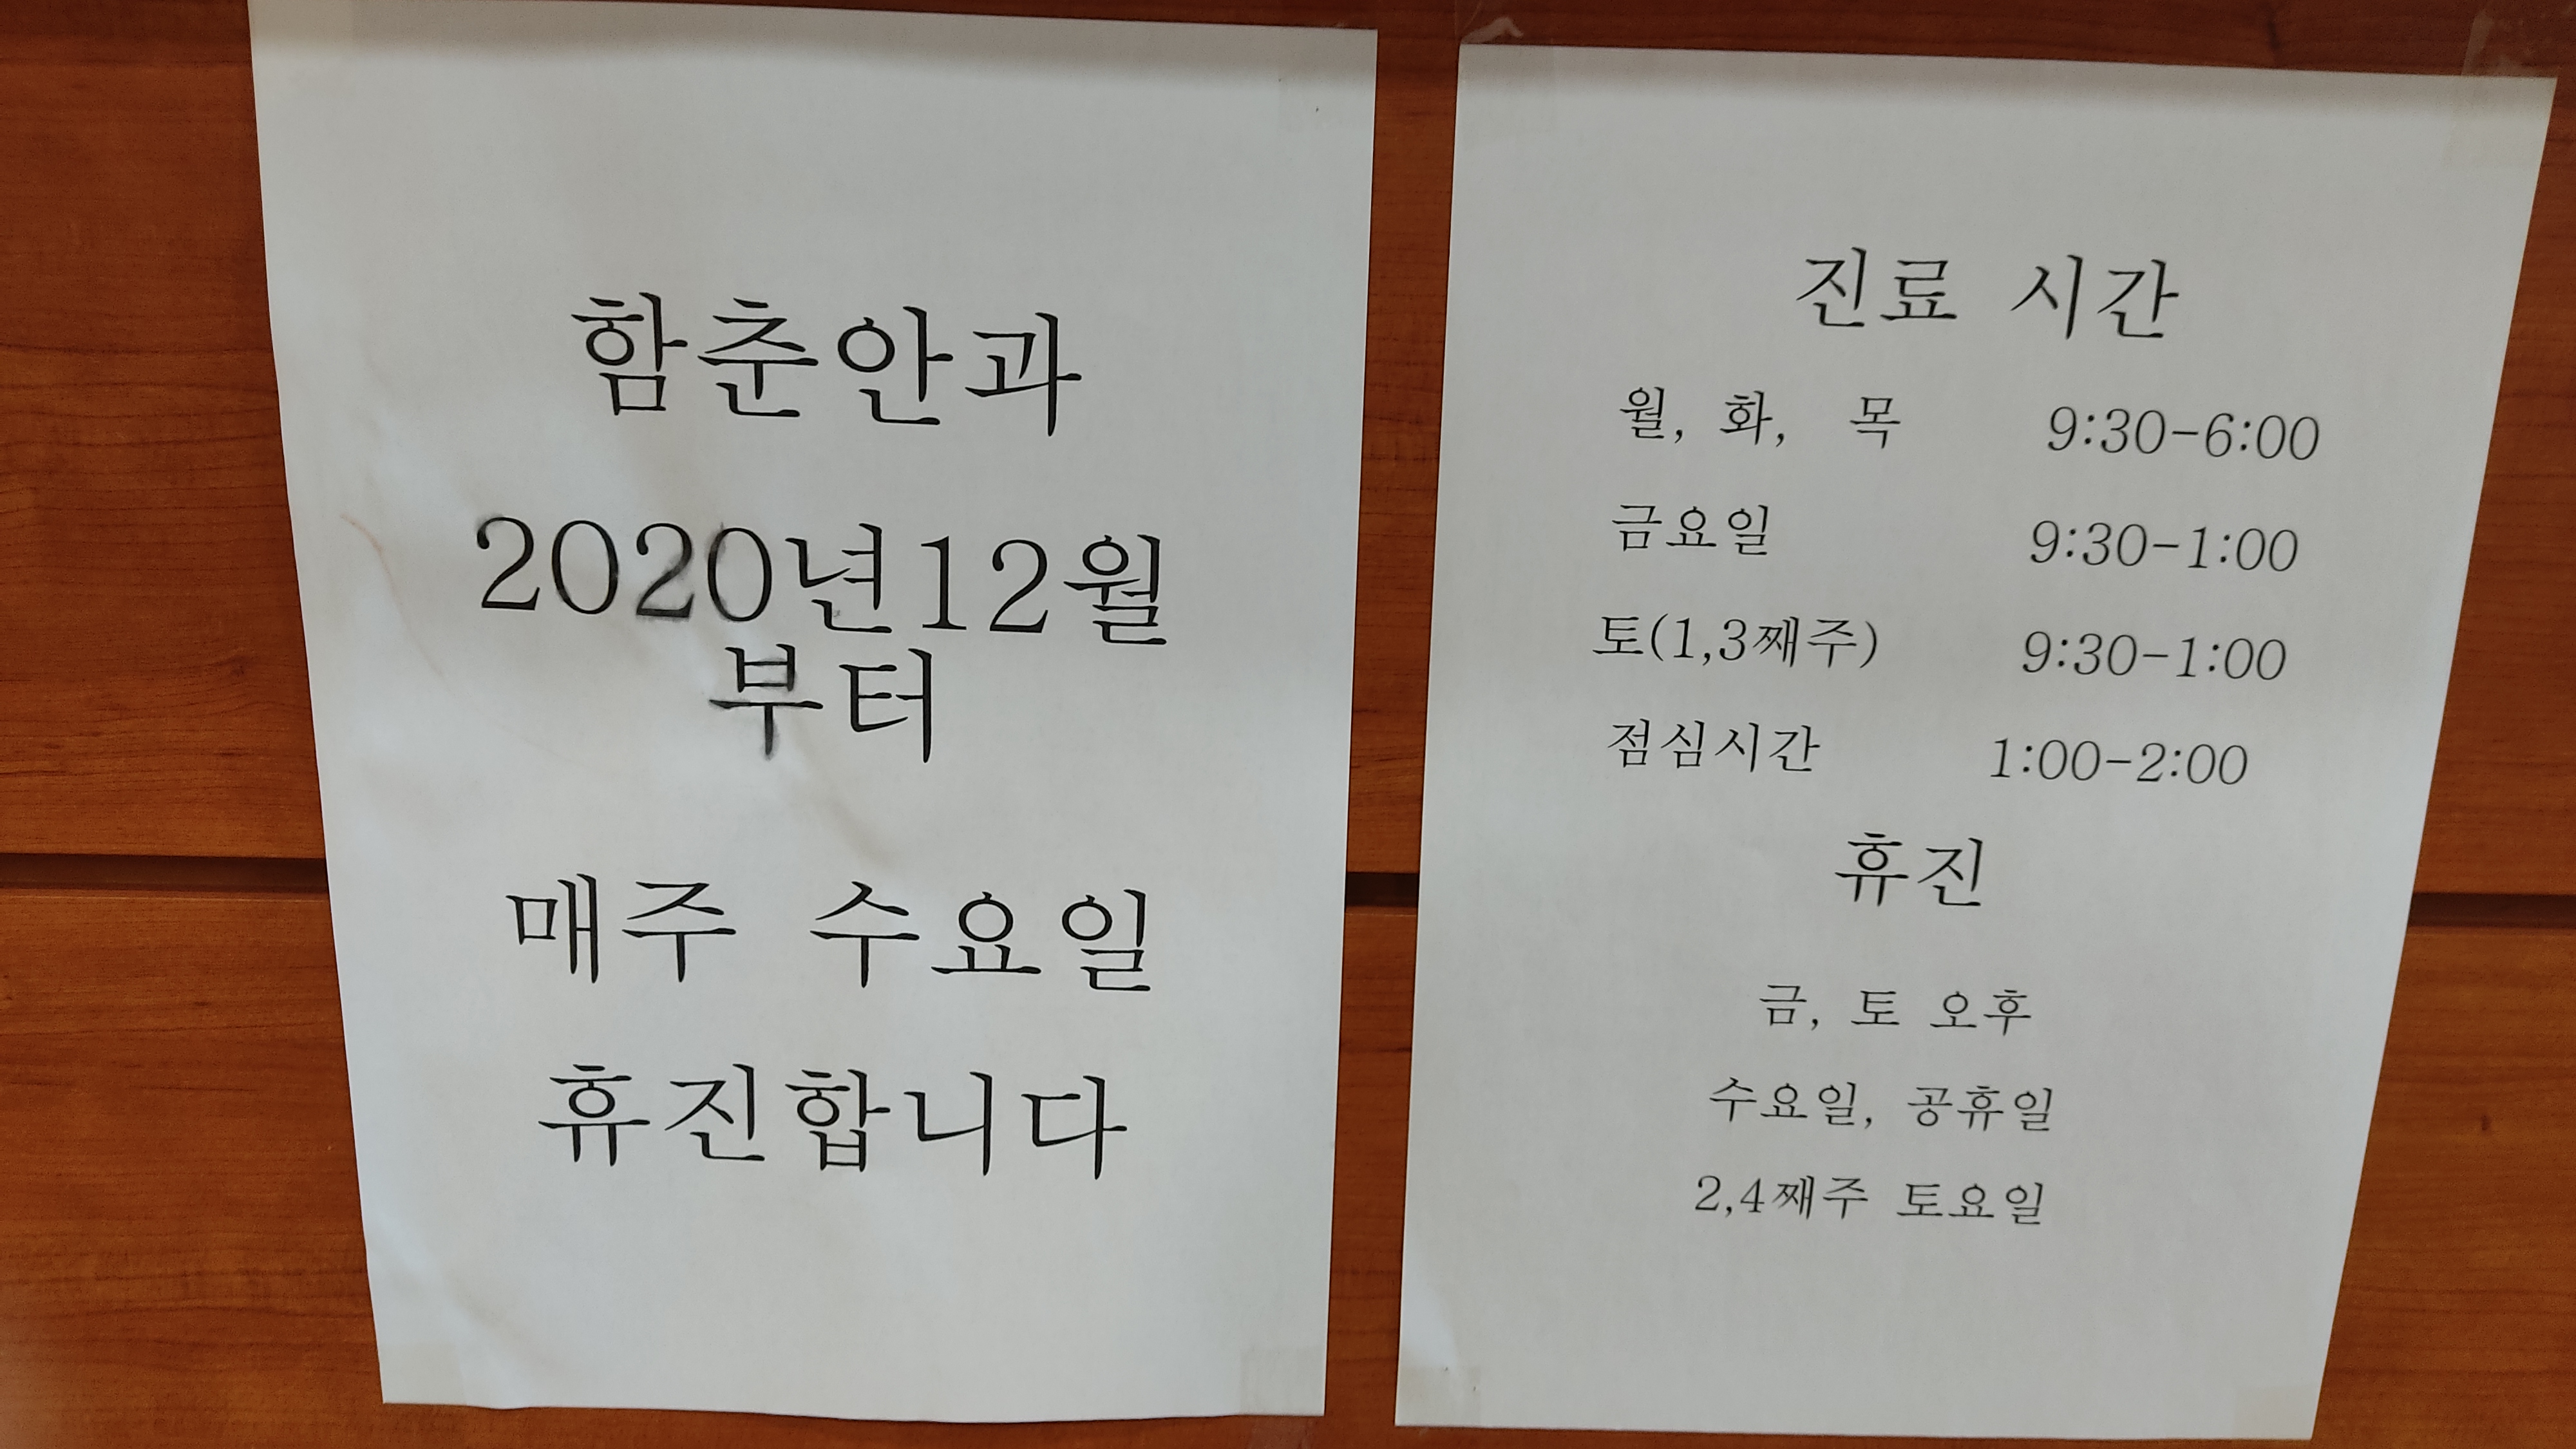 함춘안과
2020년12월
부터
매주 수요일
휴진합니다
진료 시간
월, 화, 목 9:30-6:00
금요일 9:30-1:00
토(1,3째주) 9:30-1:00
점심시간 1:00-2:00
휴진
금, 토 오후
수요일, 공휴일
2,4째주 토요일